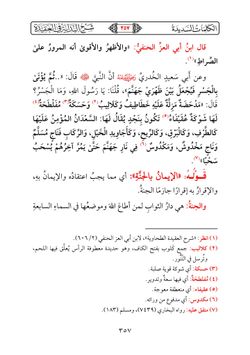 الكلمات السديدة
٣٥٧
شرح البداية في العقيدة
قال ابنُ أبي العزِّ الحنفيُّ: «والأظهرُ والأقوىٰ أنه المرورُ علىٰ
الصِّراطِ»(١).
وعن أبي سعيدٍ الخُدريِّ أنَّ النَّبيَّ ﷺ قَالَ: «..ثُمَّ يُؤْتَىٰ
بِالْجِسْرِ فَيُجْعَلُ بَيْنَ ظَهْرَيْ جَهَنَّمَ، قُلْنَا: يَا رَسُولَ اللهِ، وَمَا الْجَسْرُ؟
قَالَ: «مَدْحَضَةٌ مَزِلَّةٌ عَلَيْهِ خَطَاطِيفُ وَكَلَالِيبُ(٢) وَحَسَكَةٌ(٣) مُفَلْطَحَةٌ(٤)
لَهَا شَوْكَةٌ عُقَيْفَاءُ(٥) تَكُونُ بِنَجْدٍ يُقَالُ لَهَا: السَّعْدَانُ الْمُؤْمِنُ عَلَيْهَا
كَالطَّرْفِ، وَكَالْبَرْقِ، وَكَالرِّيحِ، وَكَأَجَاوِيدِ الْخَيْلِ، وَالرِّكَابِ فَنَاجٍ مُسَلَّمٌ
وَنَاجٍ مَخْدُوشٌ، وَمَكْدُوسٌ(٦) فِي نَارِ جَهَنَّمَ حَتَّىٰ يَمُرَّ آخِرُهُمْ يُسْحَبُ
سَحْبًا»(٧).
قَوْلُهُ: «الْإِيمَانُ بِالْجَنَّةِ»: أي مما يجبُ اعتقادُه والإيمانُ بهِ،
والإقرارُ بهِ إقرارًا جازمًا الجنةُ.
والجنةُ: هي دارُ الثوابِ لمن أطاعَ اللهَ وموضعُها في السماءِ السابعةِ
(١) انظر: «شرح العقيدة الطحاوية»، لابن أبي العز الحنفي (٢/ ٦٠٦).
(٢) كلاليب: جمع كلوب بفتح الكاف، وهو حديدة معطوفة الرأس يُعلَّق فيها اللحم،
وتُرسل في التنُّور.
(٣) حسكة: أي شوكة قوية صلبة.
(٤) مُفَلْطَحَةٌ: أي فيها سعة وتدوير.
(٥) عقيفاء: أي منعطفة معوجة.
(٦) مكدوس: أي مدفوع من ورائه.
(٧) متفق عليه: رواه البخاري (٧٤٣٩)، ومسلم (١٨٣).
٣٥٧